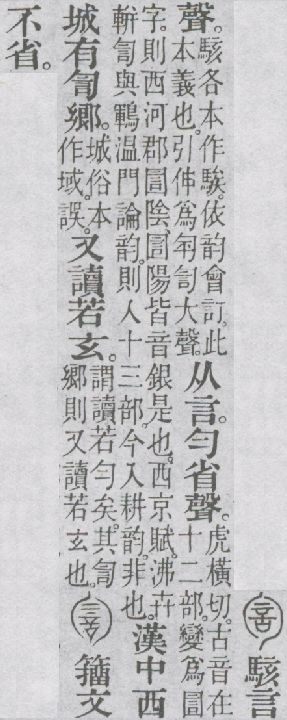 訇 駭言
聲。
駭各本作騃。依韵會訂。此
本義也。引伸爲匉訇大聲。
从言。勻省聲。
虎橫切。古音在
十二部。變爲圁
字。則西河郡圁陰圁陽皆音銀是也。西京賦。沸卉
軯訇與鶤溫門論韵。則入十三部。今入耕韵。非也。
漢中西
城有訇鄉。
城俗本
作域。誤。
又讀若玄。
謂讀若勻矣。其訇
鄉則又讀若玄也。
籒文
不省。